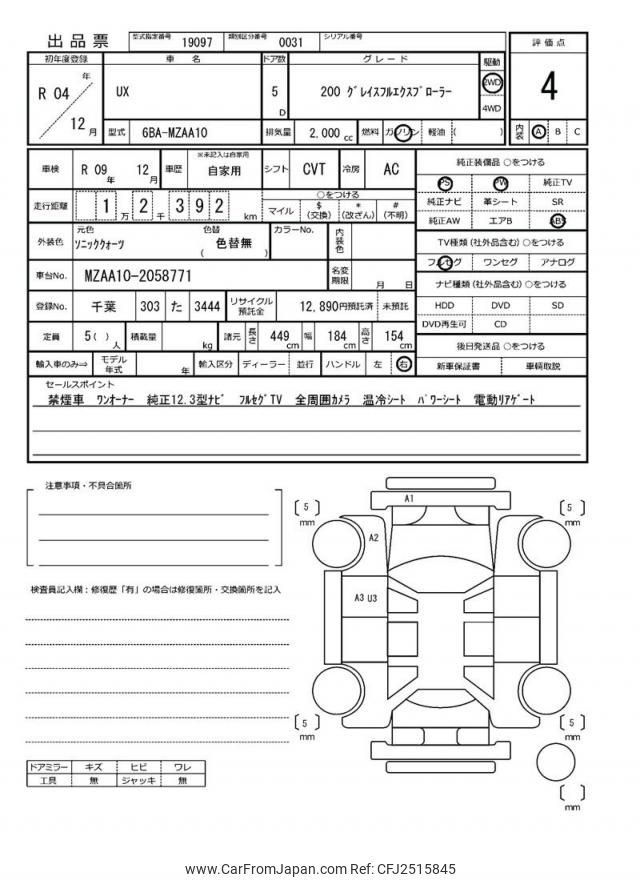 出品票 型式指定番号 19097 類別区分番号 0031 シリアル番号
初年度登録 車名 ドア数 グレード 駆動 評価点
R 04 年 12 月 UX 5 D 200 ｸﾞﾚｲｽﾌﾙｴｸｽﾌﾟﾛｰﾗｰ 2WD 4WD 4
型式 6BA-MZAA10 排気量 2,000 cc 燃料 ガソリン 軽油 ( ) 内装 A B C
車検 R 09 年 12 月 車歴 ※未記入は自家用 自家用 シフト CVT 冷房 AC
走行距離 1 万 2 千 3 9 2 km ○をつける マイル $ (交換) * (改ざん) # (不明)
外装色 元色 ｿﾆｯｸｸｫｰﾂ 色替 ( 色替無 ) カラーNo. 内装色
車台No. MZAA10-2058771 名変期限 月 日
登録No. 千葉 303 た 3444 リサイクル預託金 12,890円預託済 未預託
定員 5( ) 人 積載量 kg 諸元 長さ 449 cm 幅 184 cm 高さ 154 cm
輸入車のみ⇒ モデル年式 年 輸入区分 ディーラー 並行 ハンドル 左 右
純正装備品 ○をつける
PS PW 純正TV
純正ナビ 革シート SR
純正AW エアB ABS
TV種類(社外品含む)○をつける
フルセグ ワンセグ アナログ
ナビ種類(社外品含む)○をつける
HDD DVD SD
DVD再生可 CD
後日発送品 ○をつける
新車保証書 車輌取説
セールスポイント
禁煙車 ﾜﾝｵｰﾅｰ 純正12.3型ﾅﾋﾞ ﾌﾙｾｸﾞTV 全周囲ｶﾒﾗ 温冷ｼｰﾄ ﾊﾟﾜｰｼｰﾄ 電動ﾘｱｹﾞｰﾄ
注意事項・不具合箇所
検査員記入欄：修復歴「有」の場合は修復箇所・交換箇所を記入
ドアミラー キズ ヒビ ワレ
工具 無 ジャッキ 無
A1
[ 5 ] mm
[ 5 ] mm
A2
A3 U3
[ 5 ] mm
[ 5 ] mm
[ ] mm
www.CarFromJapan.com Ref: CFJ2515845